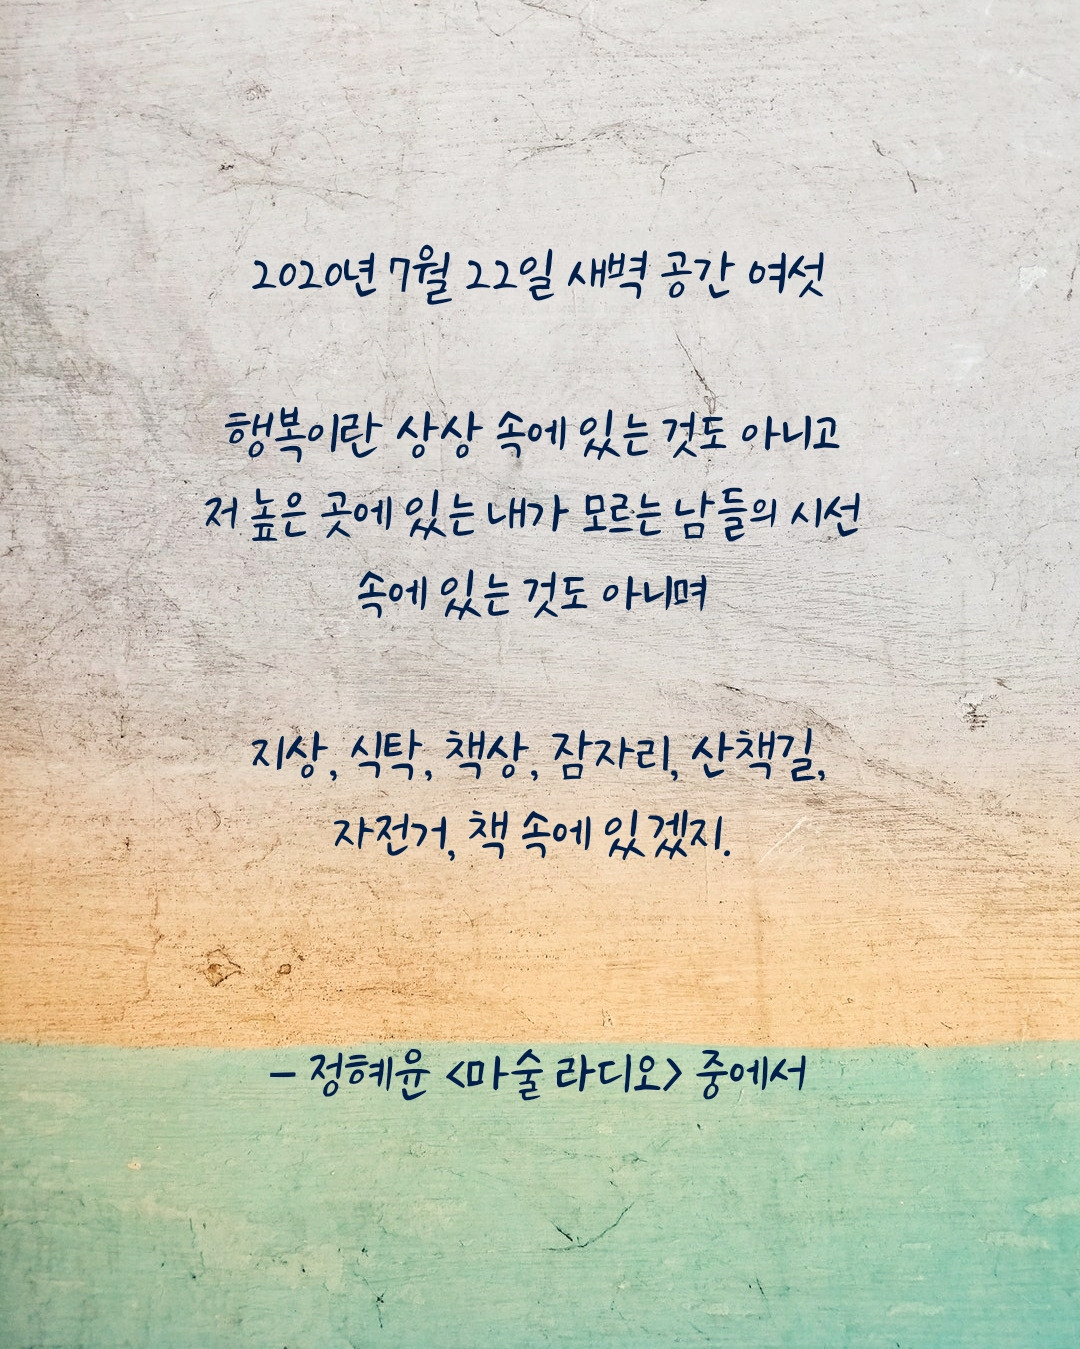 2020년 7월 22일 새벽 공간 여섯
행복이란 상상 속에 있는 것도 아니고
저 높은 곳에 있는 내가 모르는 남들의 시선
속에 있는 것도 아니며
지상, 식탁, 책상, 잠자리, 산책길,
자전거, 책 속에 있겠지.
- 정혜윤 <마술 라디오> 중에서